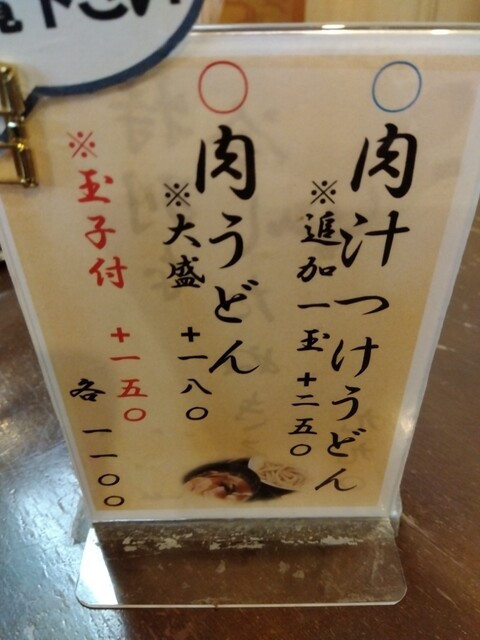 覧下さい
○肉汁つけうどん
※追加一玉 +二五〇
○肉うどん
※大盛 +一八〇
※玉子付 +一五〇
各 一一〇〇